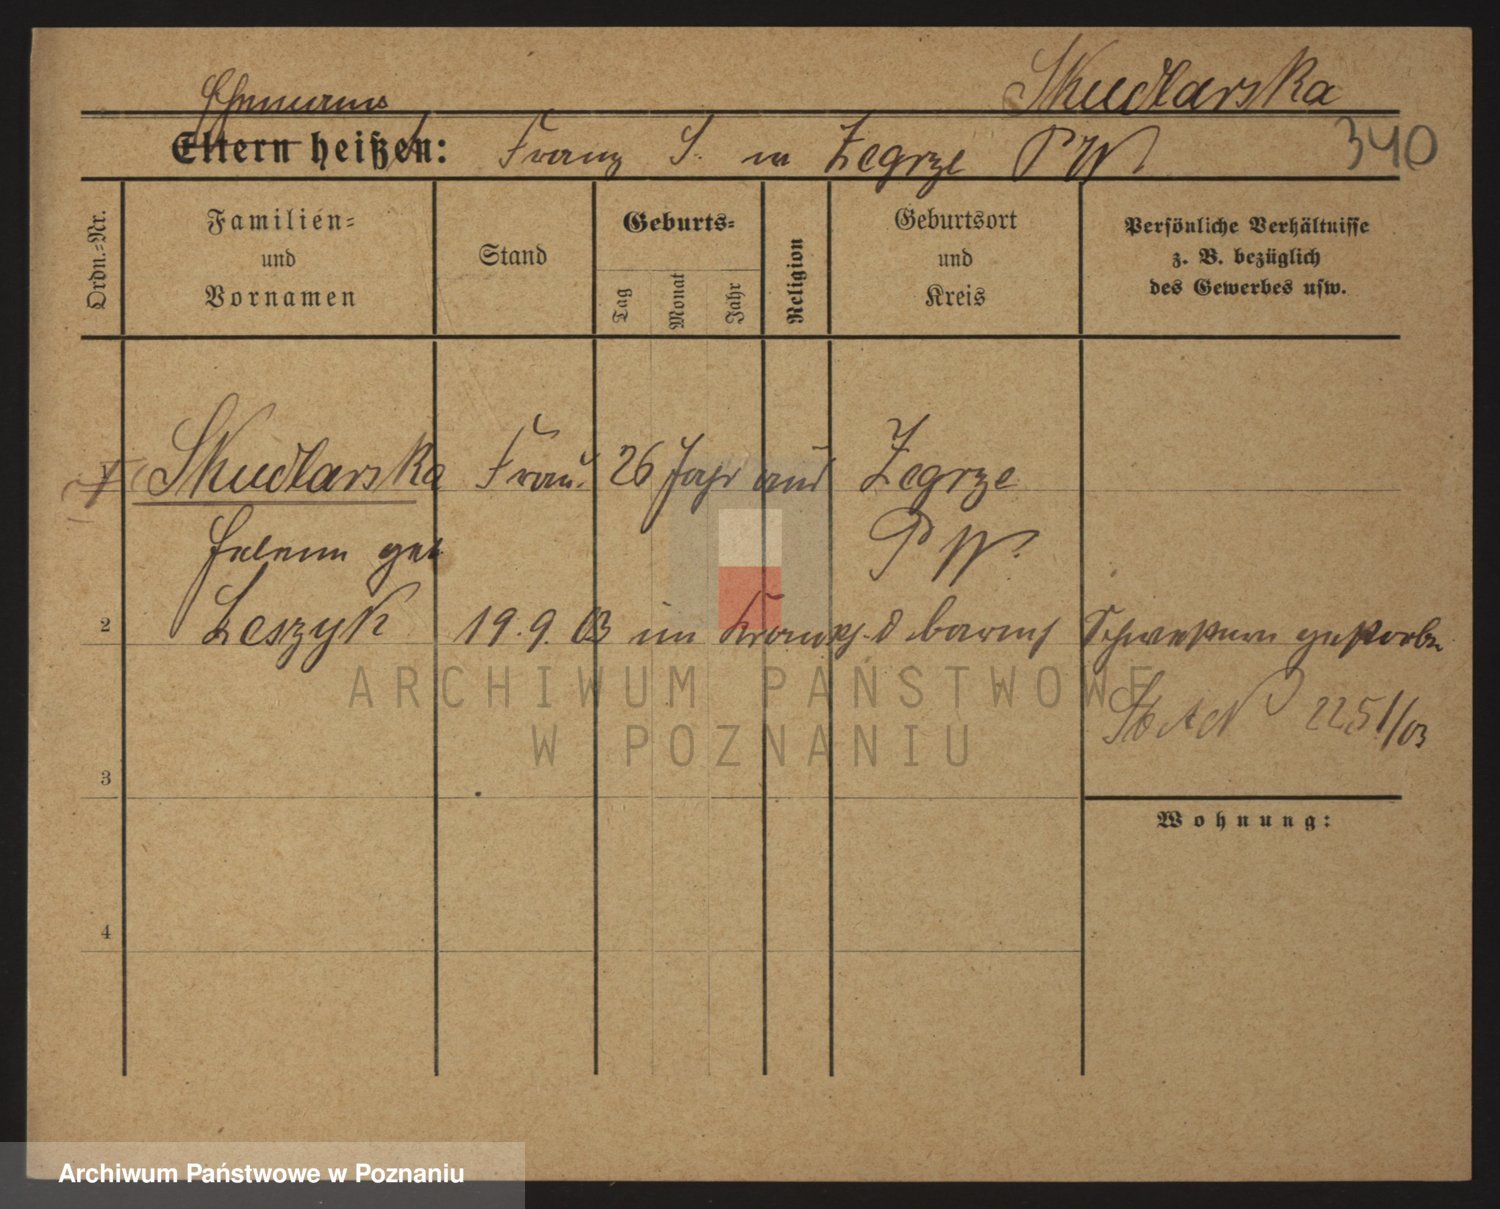 Skudlarska
Ehemann
Eltern heißen: Franz S. in Zegrze P W
340
Ordn.-Nr.
Familien- und Vornamen
Stand
Geburts-
Tag
Monat
Jahr
Religion
Geburtsort und Kreis
Persönliche Verhältnisse
z. B. bezüglich
des Gewerbes usw.
1 Skudlarska Frau 26 Jahr aus Zegrze
Helene geb P W.
2 Leszyk 19.9.03 im Krankh. d barmh Schwestern gestorben
StAN 2251/03
3
Wohnung:
4
ARCHIWUM PAŃSTWOWE
W POZNANIU
Archiwum Państwowe w Poznaniu